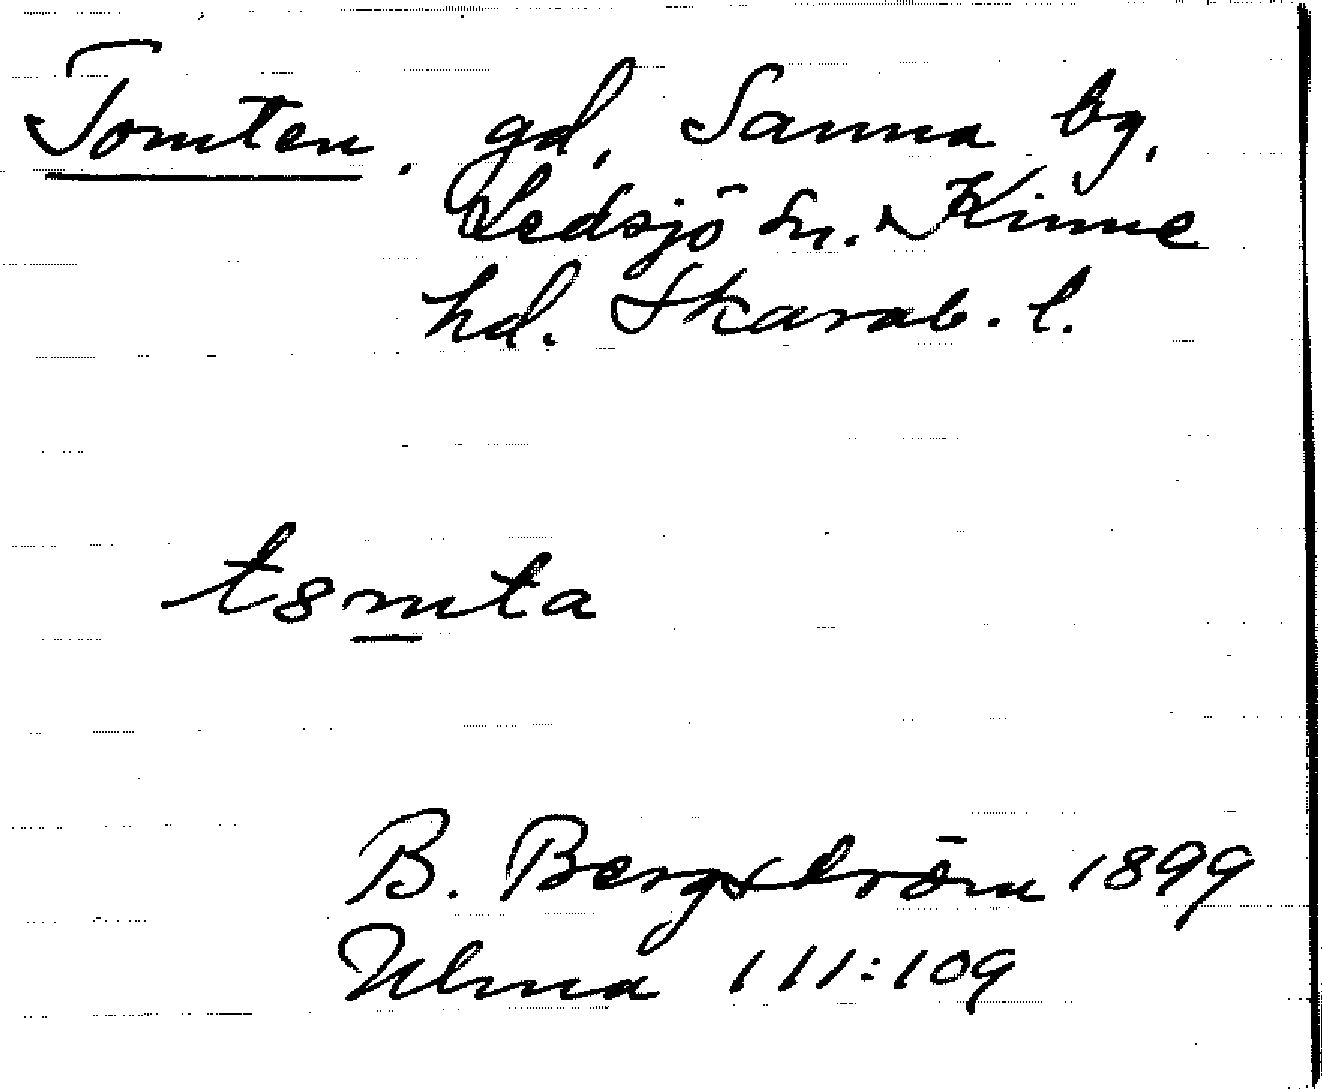 Tomten, gd, Sanna by,
Ledsjö sn. Kinne
hd. Skarab. l.
t8mta
B. Bergström 1899
Ulma 111:109